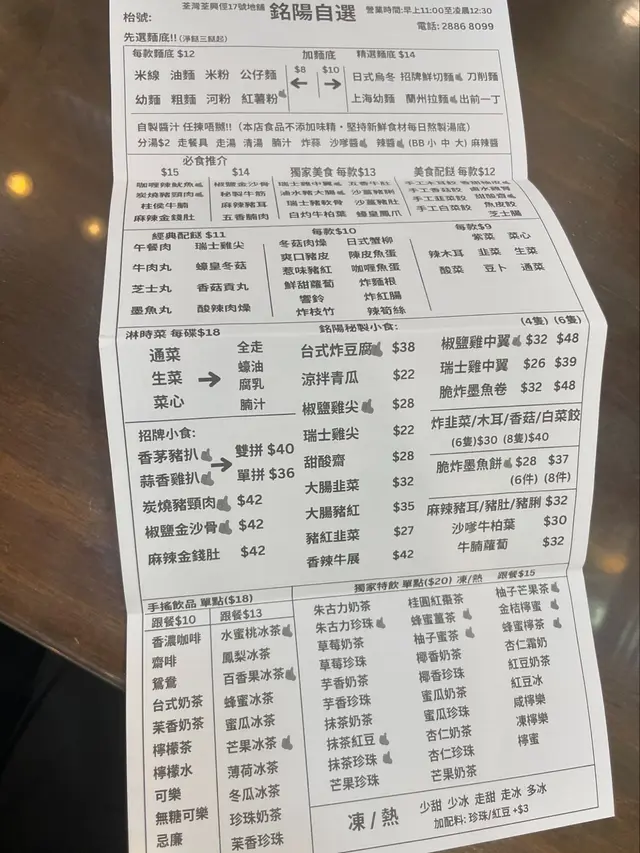 枱號:
荃灣荃興徑17號地舖 銘陽自選 營業時間:早上11:00至凌晨12:30
電話: 2886 8099
先選麵底!! (淨餸三餸起)
每款麵底 $12 加麵底 精選麵底 $14
$8 $10
米線 油麵 米粉 公仔麵
幼麵 粗麵 河粉 紅薯粉
日式烏冬 招牌鮮切麵 刀削麵
上海幼麵 蘭州拉麵 出前一丁
自製醬汁 任揀唔嬲!! (本店食品不添加味精・堅持新鮮食材每日熬製湯底)
分湯$2 走餐具 走湯 清湯 腩汁 炸蒜 沙嗲醬 辣醬 (BB 小 中 大) 麻辣醬
必食推介
$15 $14
咖喱辣魷魚 椒鹽金沙骨
炭燒豬頸肉 秘製牛筋
柱侯牛腩 麻辣豬耳
麻辣金錢肚 五香腩肉
獨家美食 每款$13
瑞士雞中翼 五香牛肚
滷水豬大腸 沙薑豬脷
瑞士豬軟骨 沙薑豬肚
白灼牛柏葉 蠔皇鳳爪
美食配餸 每款$12
手工木耳餃
手工香菇餃
手工韮菜餃 甜酸齋
手工白菜餃 魚皮餃
芝士腸
經典配餸 $11
午餐肉 瑞士雞尖
牛肉丸 蠔皇冬菇
芝士丸 香菇貢丸
墨魚丸 酸辣肉燥
每款$10
冬菇肉燥 日式蟹柳
爽口豬皮 陳皮魚蛋
惹味豬紅 咖喱魚蛋
鮮甜蘿蔔 炸麵根
響鈴 炸紅腸
炸枝竹 辣筍絲
每款$9
紫菜 菜心
辣木耳 韭菜 生菜
酸菜 豆卜 通菜
淋時菜 每碟$18
通菜
生菜
菜心
全走
蠔油
腐乳
腩汁
招牌小食:
香茅豬扒
蒜香雞扒
雙拼 $40
單拼 $36
炭燒豬頸肉 $42
椒鹽金沙骨 $42
麻辣金錢肚 $42
銘陽秘製小食:
台式炸豆腐 $38
涼拌青瓜 $22
椒鹽雞尖 $28
瑞士雞尖 $22
甜酸齋 $28
大腸韭菜 $32
大腸豬紅 $35
豬紅韭菜 $27
香辣牛展 $42
(4隻) (6隻)
椒鹽雞中翼 $32 $48
瑞士雞中翼 $26 $39
脆炸墨魚卷 $32 $48
炸韭菜/木耳/香菇/白菜餃
(6隻)$30 (8隻)$40
脆炸墨魚餅 $28 $37
(6件) (8件)
麻辣豬耳/豬肚/豬脷 $32
沙嗲牛柏葉 $30
牛腩蘿蔔 $32
手搖飲品 單點($18)
跟餐$10 跟餐$13
香濃咖啡 水蜜桃冰茶
齋啡 鳳梨冰茶
鴛鴦 百香果冰茶
台式奶茶 蜂蜜冰茶
茉香奶茶 蜜瓜冰茶
檸檬茶 芒果冰茶
檸檬水 薄荷冰茶
可樂 冬瓜冰茶
無糖可樂 珍珠奶茶
忌廉 茉香珍珠
獨家特飲 單點($20) 凍/熱 跟餐$15
朱古力奶茶 桂圓紅棗茶 柚子芒果茶
朱古力珍珠 蜂蜜薑茶 金桔檸蜜
草莓奶茶 柚子蜜茶 蜂蜜檸茶
草莓珍珠 椰香奶茶 杏仁霜奶
芋香奶茶 椰香珍珠 紅豆奶茶
芋香珍珠 蜜瓜奶茶 紅豆冰
抹茶奶茶 蜜瓜珍珠 咸檸樂
抹茶紅豆 杏仁奶茶 凍檸樂
抹茶珍珠 杏仁珍珠 檸蜜
芒果珍珠 芒果奶茶
凍 / 熱
少甜 少冰 走甜 走冰 多冰
加配料: 珍珠/紅豆 +$3